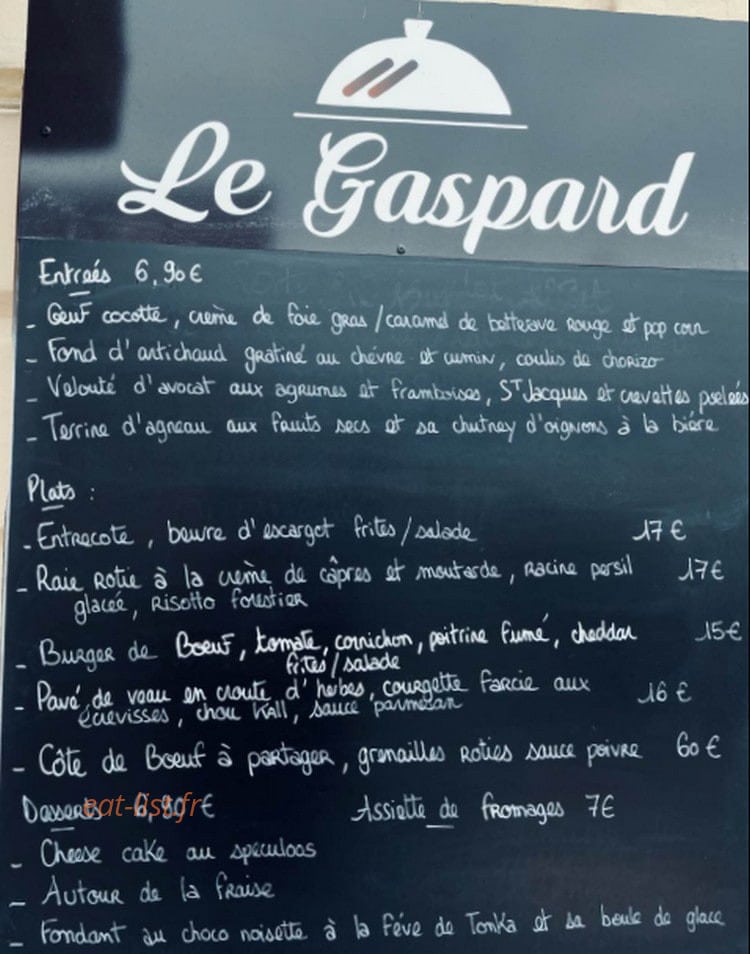 Le Gaspard
Entrées 6,90€
- Oeuf cocotte, crème de foie gras / caramel de betterave rouge et pop corn
- Fond d'artichaud gratiné au chèvre et cumin, coulis de chorizo
- Velouté d'avocat aux agrumes et framboises, St Jacques et crevettes poelées
- Terrine d'agneau aux fruits secs et sa chutney d'oignons à la bière
Plats :
- Entrecote, beurre d'escargot frites/salade 17€
- Raie Rotie à la crème de câpres et moutarde, racine persil 17€
glacée, Risotto forestier
- Burger de Boeuf, tomate, cornichon, poitrine fumé, cheddar 15€
frites/salade
- Pavé de veau en croute d'herbes, courgette farcie aux 16€
écrevisses, chou Kall, sauce parmesan
- Côte de Boeuf à partager, grenailles Roties sauce poivre 60€
Desserts 6,90€ Assiette de fromages 7€
eat-list.fr
- Cheese cake au speculoos
- Autour de la fraise
- Fondant au choco noisette à la féve de Tonka et sa boule de glace